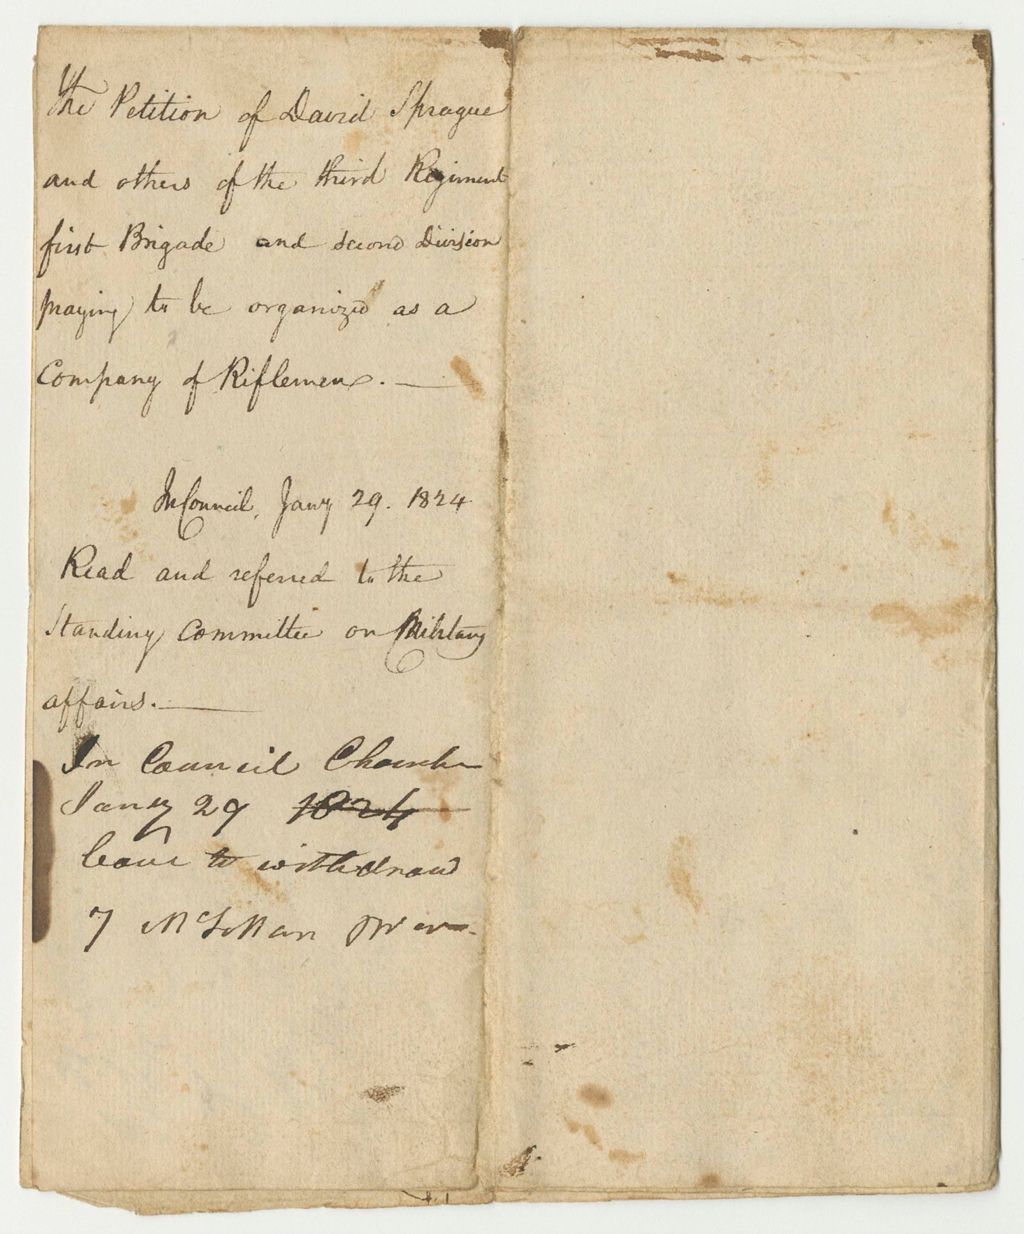 The Petition of David Sprague
and others of the third Regiment
first Brigade and second Division
praying to be organized as a
Company of Riflemen. —
In Council, Jany 29. 1824
Read and referred to the
Standing Committee on Military
affairs. —
In Council Chamber
Jany 29 1824
leave to withdraw